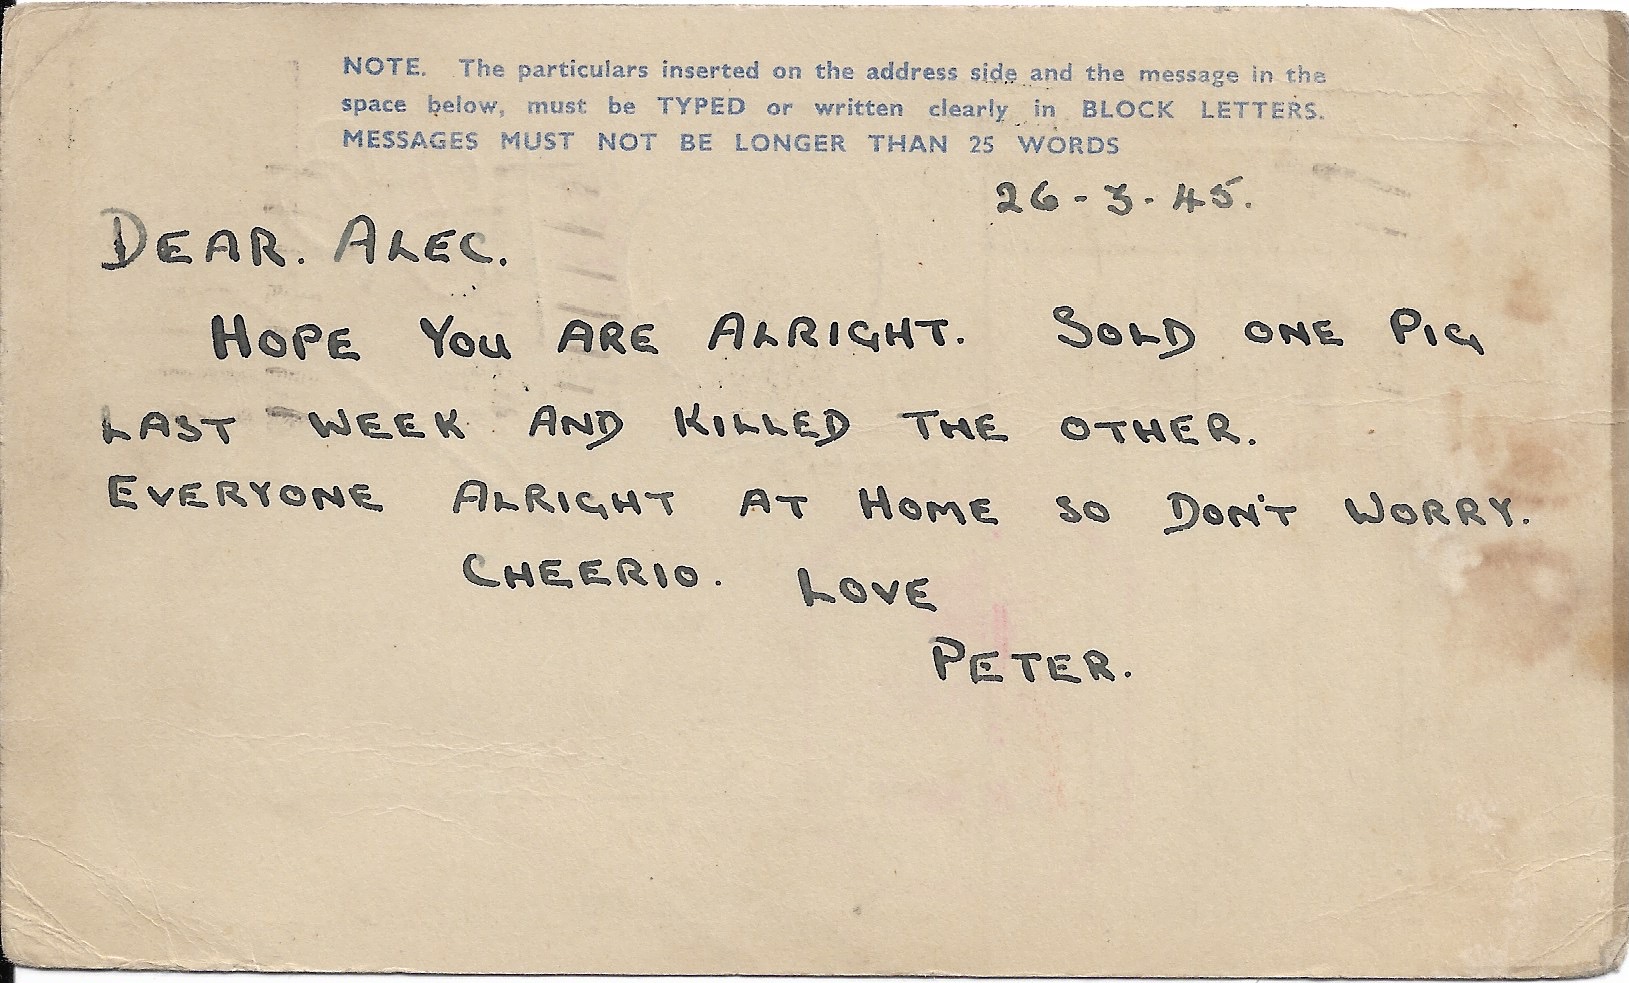 NOTE. The particulars inserted on the address side and the message in the
space below, must be TYPED or written clearly in BLOCK LETTERS.
MESSAGES MUST NOT BE LONGER THAN 25 WORDS
26-3-45.
DEAR. ALEC.
HOPE YOU ARE ALRIGHT. SOLD ONE PIG
LAST WEEK AND KILLED THE OTHER.
EVERYONE ALRIGHT AT HOME SO DON'T WORRY.
CHEERIO. LOVE
PETER.